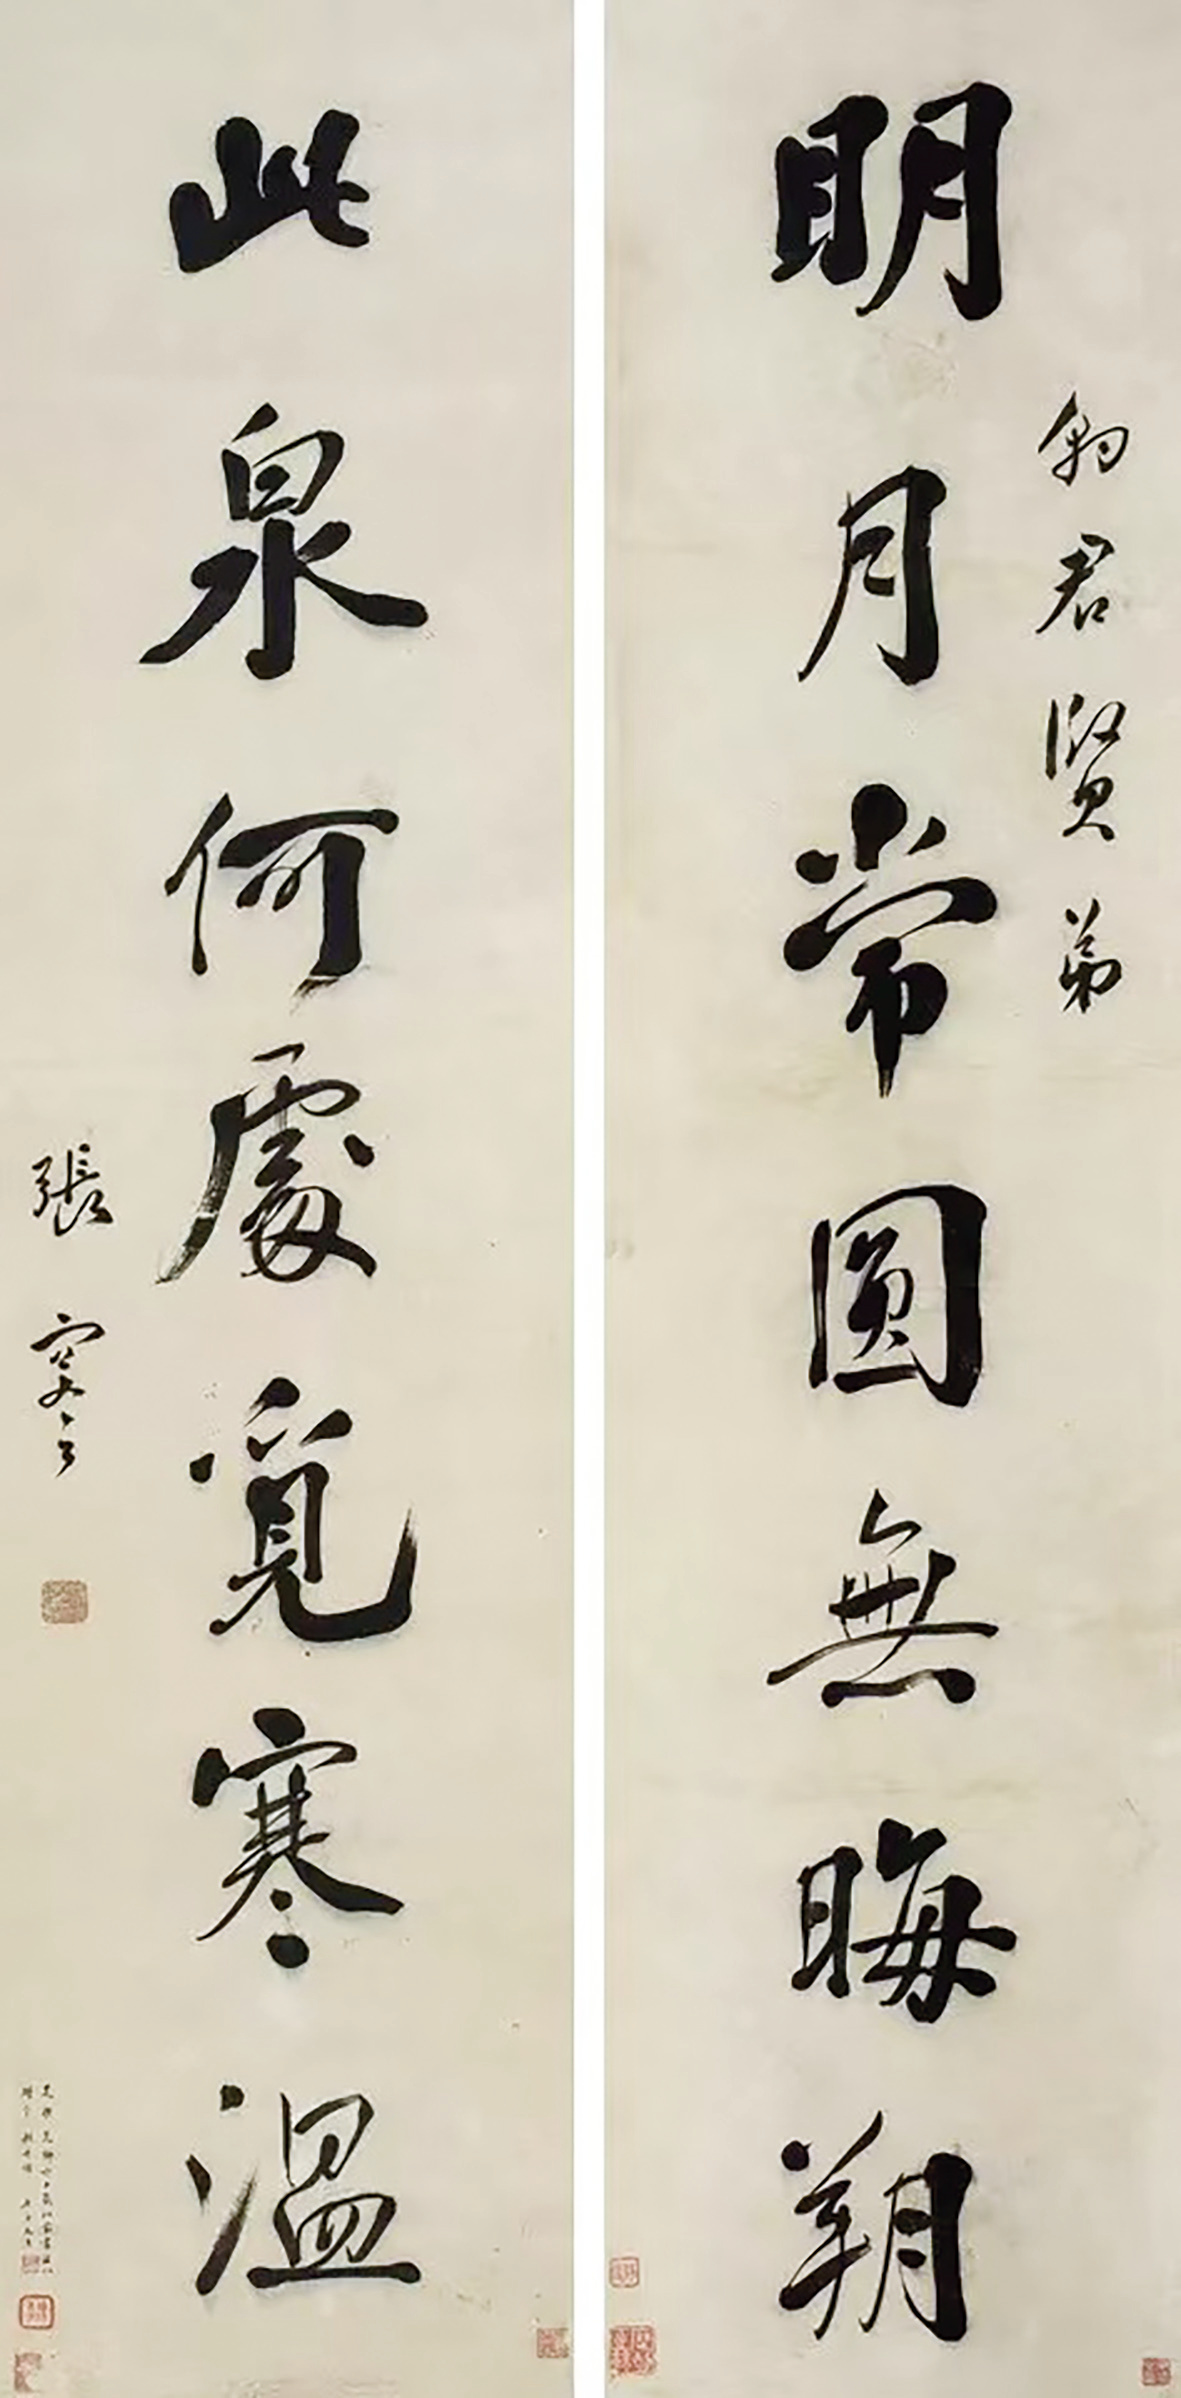 明月常圓無晦朔
豹君賢弟
此泉何處覓寒溫
張謇